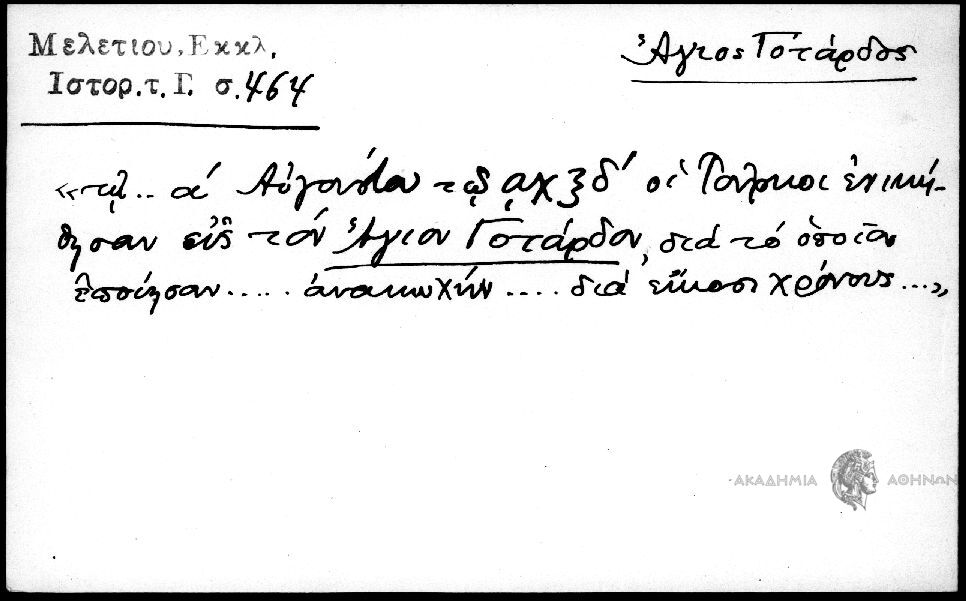 Μελετιου, Εκκλ.
Ιστορ. τ. Γ. σ. 464
Ἅγιος Γοτάρδος
«τῇ .. α΄ Αὐγούστου τῷ ͵αχξδ΄ οἱ Τοῦρκοι ἐνική-
θησαν εἰς τὸν Ἅγιον Γοτάρδον, διὰ τὸ ὁποῖον
ἐποίησαν ..... ἀνακωχήν .... διὰ εἴκοσι χρόνους ...»
ΑΚΑΔΗΜΙΑ ΑΘΗΝΩΝ